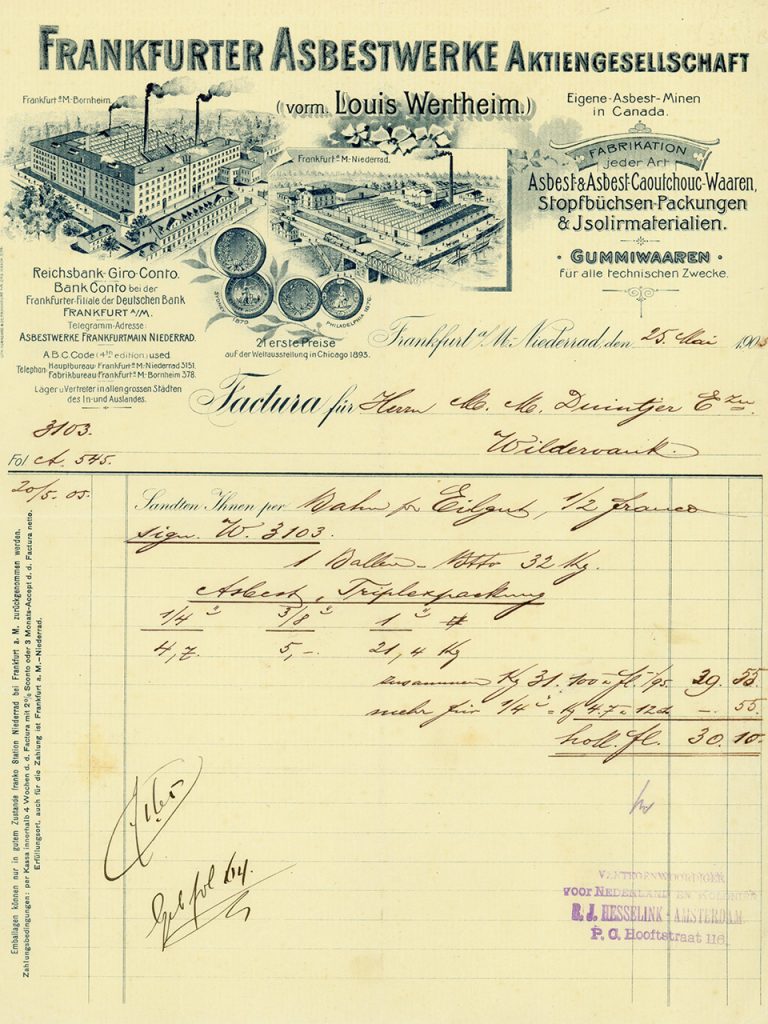 FRANKFURTER ASBESTWERKE AKTIENGESELLSCHAFT
(vorm. Louis Wertheim.)
Frankfurt a/M-Bornheim.
Frankfurt a/M-Niederrad.
Eigene-Asbest-Minen
in Canada.
FABRIKATION
jeder Art
Asbest-&Asbest-Caoutchouc-Waaren,
Stopfbüchsen-Packungen
& Jsolirmaterialien.
GUMMIWAAREN
für alle technischen Zwecke.
Reichsbank-Giro-Conto.
Bank Conto bei der
Frankfurter-Filiale der Deutschen Bank
FRANKFURT A/M.
Telegramm-Adresse:
ASBESTWERKE FRANKFURTMAIN NIEDERRAD.
A.B.C Code (4th edition) used
Telephon Hauptbureau-Frankfurt a/M-Niederrad 3151.
Fabrikbureau-Frankfurt a/M-Bornheim 378.
Lager u Vertreter in allen grossen Städten
des In- und Auslandes.
SYDNEY 1879
PHILADELPHIA 1876.
21 erste Preise
auf der Weltausstellung in Chicago 1893.
Frankfurt a/M-Niederrad, den 25. Mai 1905
Factura für Herrn M. M. Duintjer Ezn
Wildervank.
3103.
Fol A. 545.
20/5. 05.
Sandten Ihnen per Bahn pr Eilgut, 1/2 franco
sign. W. 3103.
1 Ballen - Btto 32 Kg.
Asbest, Triplexpackung
1/4" 3/8" 1" #
4,7 5,- 21,4 Kg
zusammen Kg 31.100 a fl. -/95 29. 55
mehr für 1/4" = Kg 4.7 a 12 cts -. 55.
holl. fl. 30.10.
VERTEGENWOORDIGER
voor NEDERLAND EN KOLONIEN
B. J. HESSELINK - AMSTERDAM.
P. C. Hooftstraat 116.
Emballagen können nur in gutem Zustande franko Station Niederrad bei Frankfurt a. M. zurückgenommen werden.
Zahlungsbedingungen: per Kassa innerhalb 4 Wochen d. d. Factura mit 2% Sconto oder 3 Monats-Accept d. d. Factura netto.
Erfüllungsort, auch für die Zahlung ist Frankfurt a. M.-Niederrad.